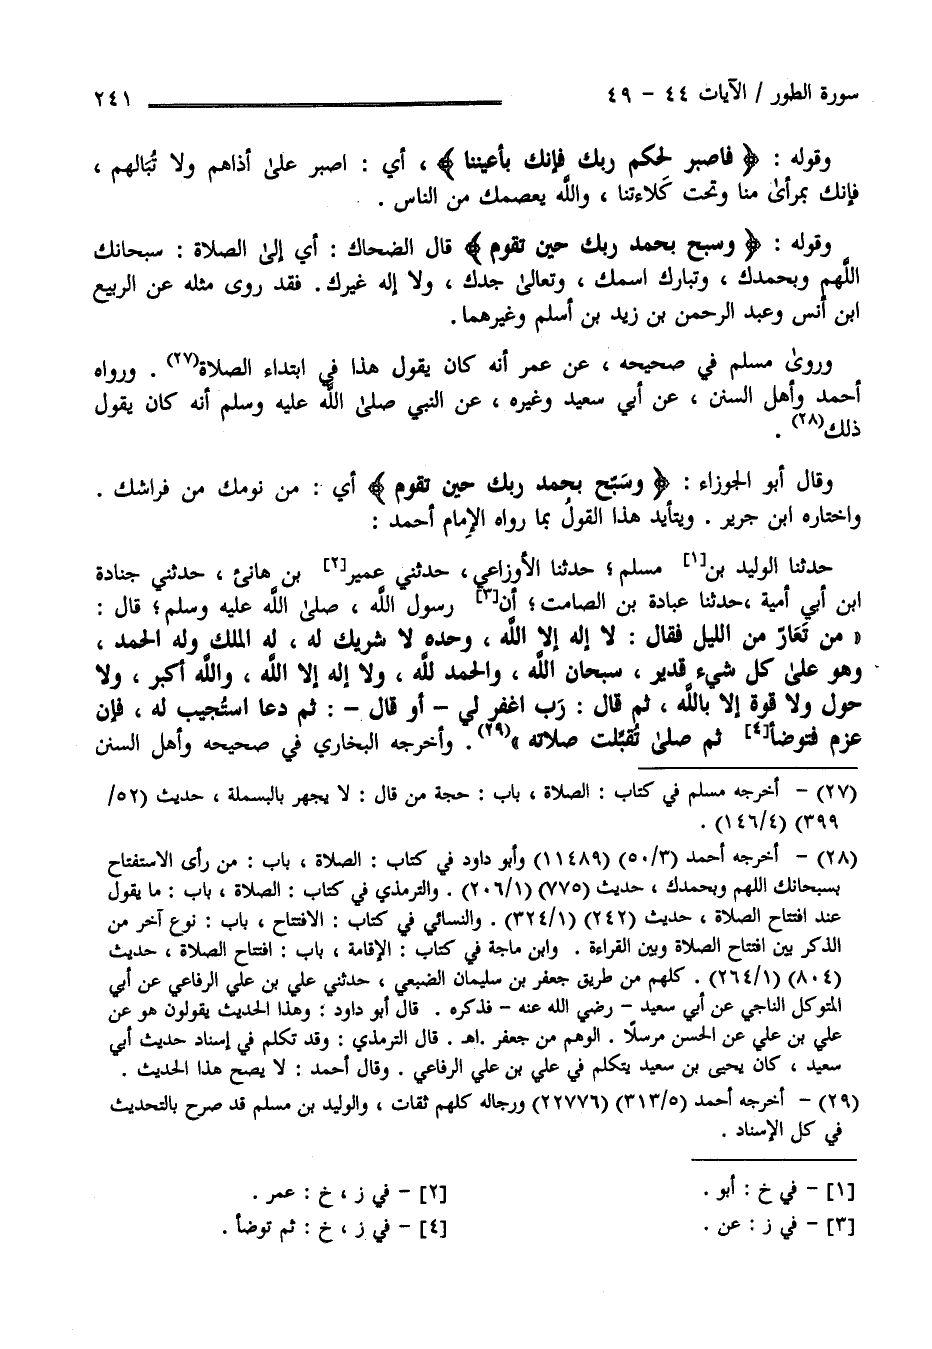 سورة الطور / الآيات ٤٤ - ٤٩ ٢٤١
وقوله : ﴿ فاصبر لحكم ربك فإنك بأعيننا ﴾ ، أي : اصبر علىٰ أذاهم ولا تُبَالهم ،
فإنك بمرأىٰ منا وتحت كَلاءتنا ، واللَّه يعصمك من الناس .
وقوله : ﴿ وسبح بحمد ربك حين تقوم ﴾ قال الضحاك : أي إلىٰ الصلاة : سبحانك
اللَّهم وبحمدك ، وتبارك اسمك ، وتعالىٰ جدك ، ولا إله غيرك. فقد روى مثله عن الربيع
ابن أنس وعبد الرحمن بن زيد بن أسلم وغيرهما .
وروىٰ مسلم في صحيحه ، عن عمر أنه كان يقول هذا في ابتداء الصلاة(٢٧) . ورواه
أحمد وأهل السنن ، عن أبي سعيد وغيره ، عن النبي صلىٰ اللَّه عليه وسلم أنه كان يقول
ذلك(٢٨) .
وقال أبو الجوزاء : ﴿ وسَبّح بحمد ربك حين تقوم ﴾ أي : من نومك من فراشك .
واختاره ابن جرير . ويتأيد هذا القولُ بما رواه الإِمام أحمد :
حدثنا الوليد بن[١] مسلم ؛ حدثنا الأوزاعي ، حدثني عمير[٢] بن هانئ ، حدثني جنادة
ابن أبي أمية ،حدثنا عبادة بن الصامت ؛ أن[٣] رسول اللَّه ، صلىٰ اللَّه عليه وسلم ؛ قال :
« من تَعَارّ من الليل فقال : لا إله إلا اللَّه ، وحده لا شريك له ، له الملك وله الحمد ،
وهو علىٰ كل شيء قدير ، سبحان اللَّه ، والحمد للَّه ، ولا إله إلا اللَّه ، واللَّه أكبر ، ولا
حول ولا قوة إلا باللَّه ، ثم قال : رَب اغفر لي – أو قال – : ثم دعا استُجيب له ، فإن
عزم فتوضأ[٤] ثم صلىٰ تُقبّلت صلاته »(٢٩) . وأخرجه البخاري في صحيحه وأهل السنن
(٢٧) – أخرجه مسلم في كتاب : الصلاة ، باب : حجة من قال : لا يجهر بالبسملة ، حديث (٥٢/
٣٩٩) (١٤٦/٤) .
(٢٨) – أخرجه أحمد (٥٠/٣) (١١٤٨٩) وأبو داود في كتاب : الصلاة ، باب : من رأى الاستفتاح
بسبحانك اللهم وبحمدك ، حديث (٧٧٥) (٢٠٦/١) . والترمذي في كتاب : الصلاة ، باب : ما يقول
عند افتتاح الصلاة ، حديث (٢٤٢) (٣٢٤/١) . والنسائي في كتاب : الافتتاح ، باب : نوع آخر من
الذكر بين افتتاح الصلاة وبين القراءة . وابن ماجة في كتاب : الإقامة ، باب : افتتاح الصلاة ، حديث
(٨٠٤) (٢٦٤/١) . كلهم من طريق جعفر بن سليمان الضبعي ، حدثني علي بن علي الرفاعي عن أبي
المتوكل الناجي عن أبي سعيد – رضي الله عنه – فذكره . قال أبو داود : وهذا الحديث يقولون هو عن
علي بن علي عن الحسن مرسلًا . الوهم من جعفر .اهـ . قال الترمذي : وقد تكلم في إسناد حديث أبي
سعيد ، كان يحيى بن سعيد يتكلم في علي بن علي الرفاعي . وقال أحمد : لا يصح هذا الحديث .
(٢٩) – أخرجه أحمد (٣١٣/٥) (٢٢٧٧٦) ورجاله كلهم ثقات ، والوليد بن مسلم قد صرح بالتحديث
في كل الإسناد .
[١] – في خ : أبو . [٢] – في ز ، خ : عمر .
[٣] – في ز : عن . [٤] – في ز ، خ : ثم توضأ .